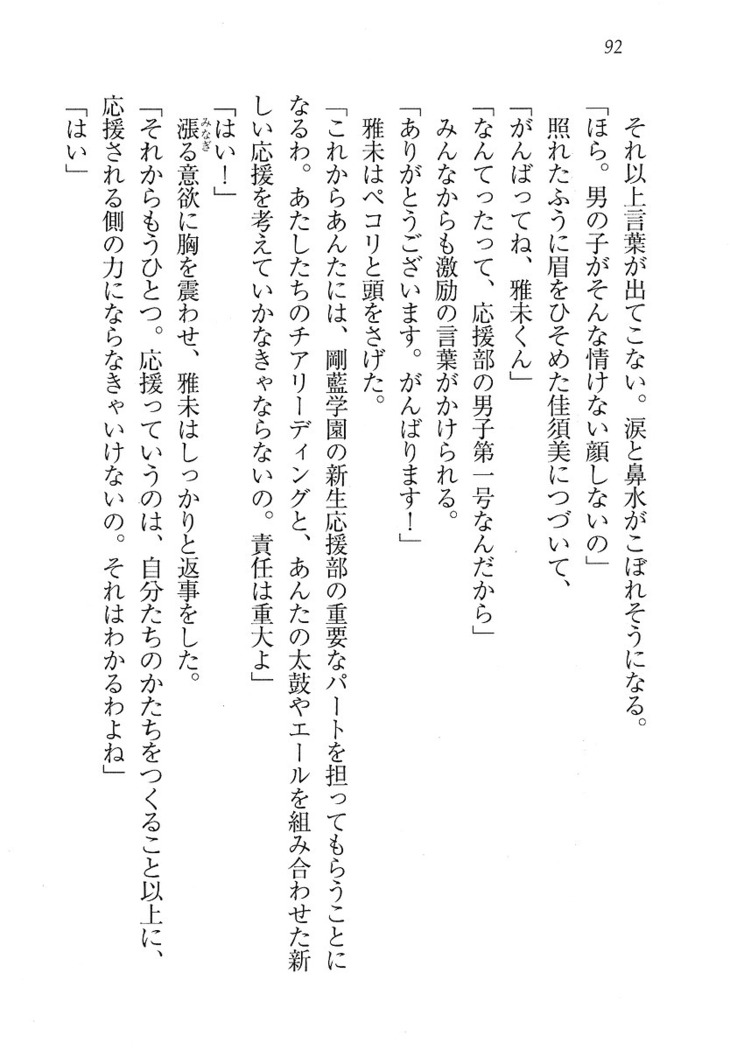 92
それ以上言葉が出てこない。涙と鼻水がこぼれそうになる。
「ほら。男の子がそんな情けない顔しないの」
照れたふうに眉をひそめた佳須美につづいて、
「がんばってね、雅未くん」
「なんてったって、応援部の男子第一号なんだから」
みんなからも激励の言葉がかけられる。
「ありがとうございます。がんばります！」
雅未はペコリと頭をさげた。
「これからあんたには、剛藍学園の新生応援部の重要なパートを担ってもらうことに
なるわ。あたしたちのチアリーディングと、あんたの太鼓やエールを組み合わせた新
しい応援を考えていかなきゃならないの。責任は重大よ」
「はい！」
漲る意欲に胸を震わせ、雅未はしっかりと返事をした。
みなぎ
「それからもうひとつ。応援っていうのは、自分たちのかたちをつくること以上に、
応援される側の力にならなきゃいけないの。それはわかるわよね」
「はい」